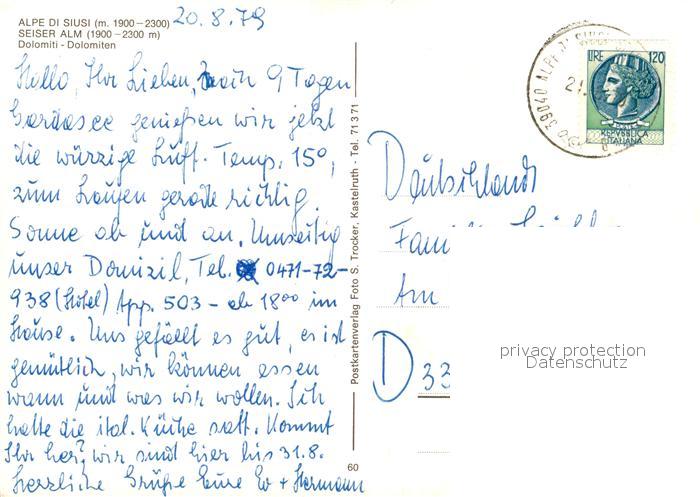 ALPE DI SIUSI (m. 1900-2300)
SEISER ALM (1900-2300 m)
Dolomiti - Dolomiten
20.8.79
Hallo, Ihr Lieben, nach 9 Tagen
Gardasee genießen wir jetzt
die würzige Luft. Temp. 15°,
zum Laufen gerade richtig.
Sonne ab und an. Umseitig
unser Domizil, Tel. 0471-72-
938 (Hotel) App. 503 - ab 18⁰⁰ im
Hause. Uns gefällt es gut, es ist
gemütlich, wir können essen
wann und was wir wollen. Ich
hatte die ital. Küche satt. Kommt
Ihr her? wir sind hier bis 31.8.
Herzliche Grüße Eure Ev + Hermann
Postkartenverlag Foto S. Trocker, Kastelruth - Tel. 71371
60
39040 ALPE DI SIUSI
LIRE 120
REPVBBLICA
ITALIANA
Deutschland
Am
D 33
privacy protection
Datenschutz